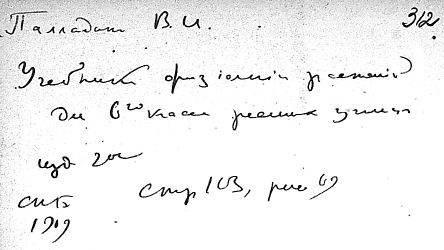 Палладин В.И. 312
Учебник физіологіи растеній
для 6го класса реальных училищ
изд 2ое
СПБ стр 163, рис 69
1909